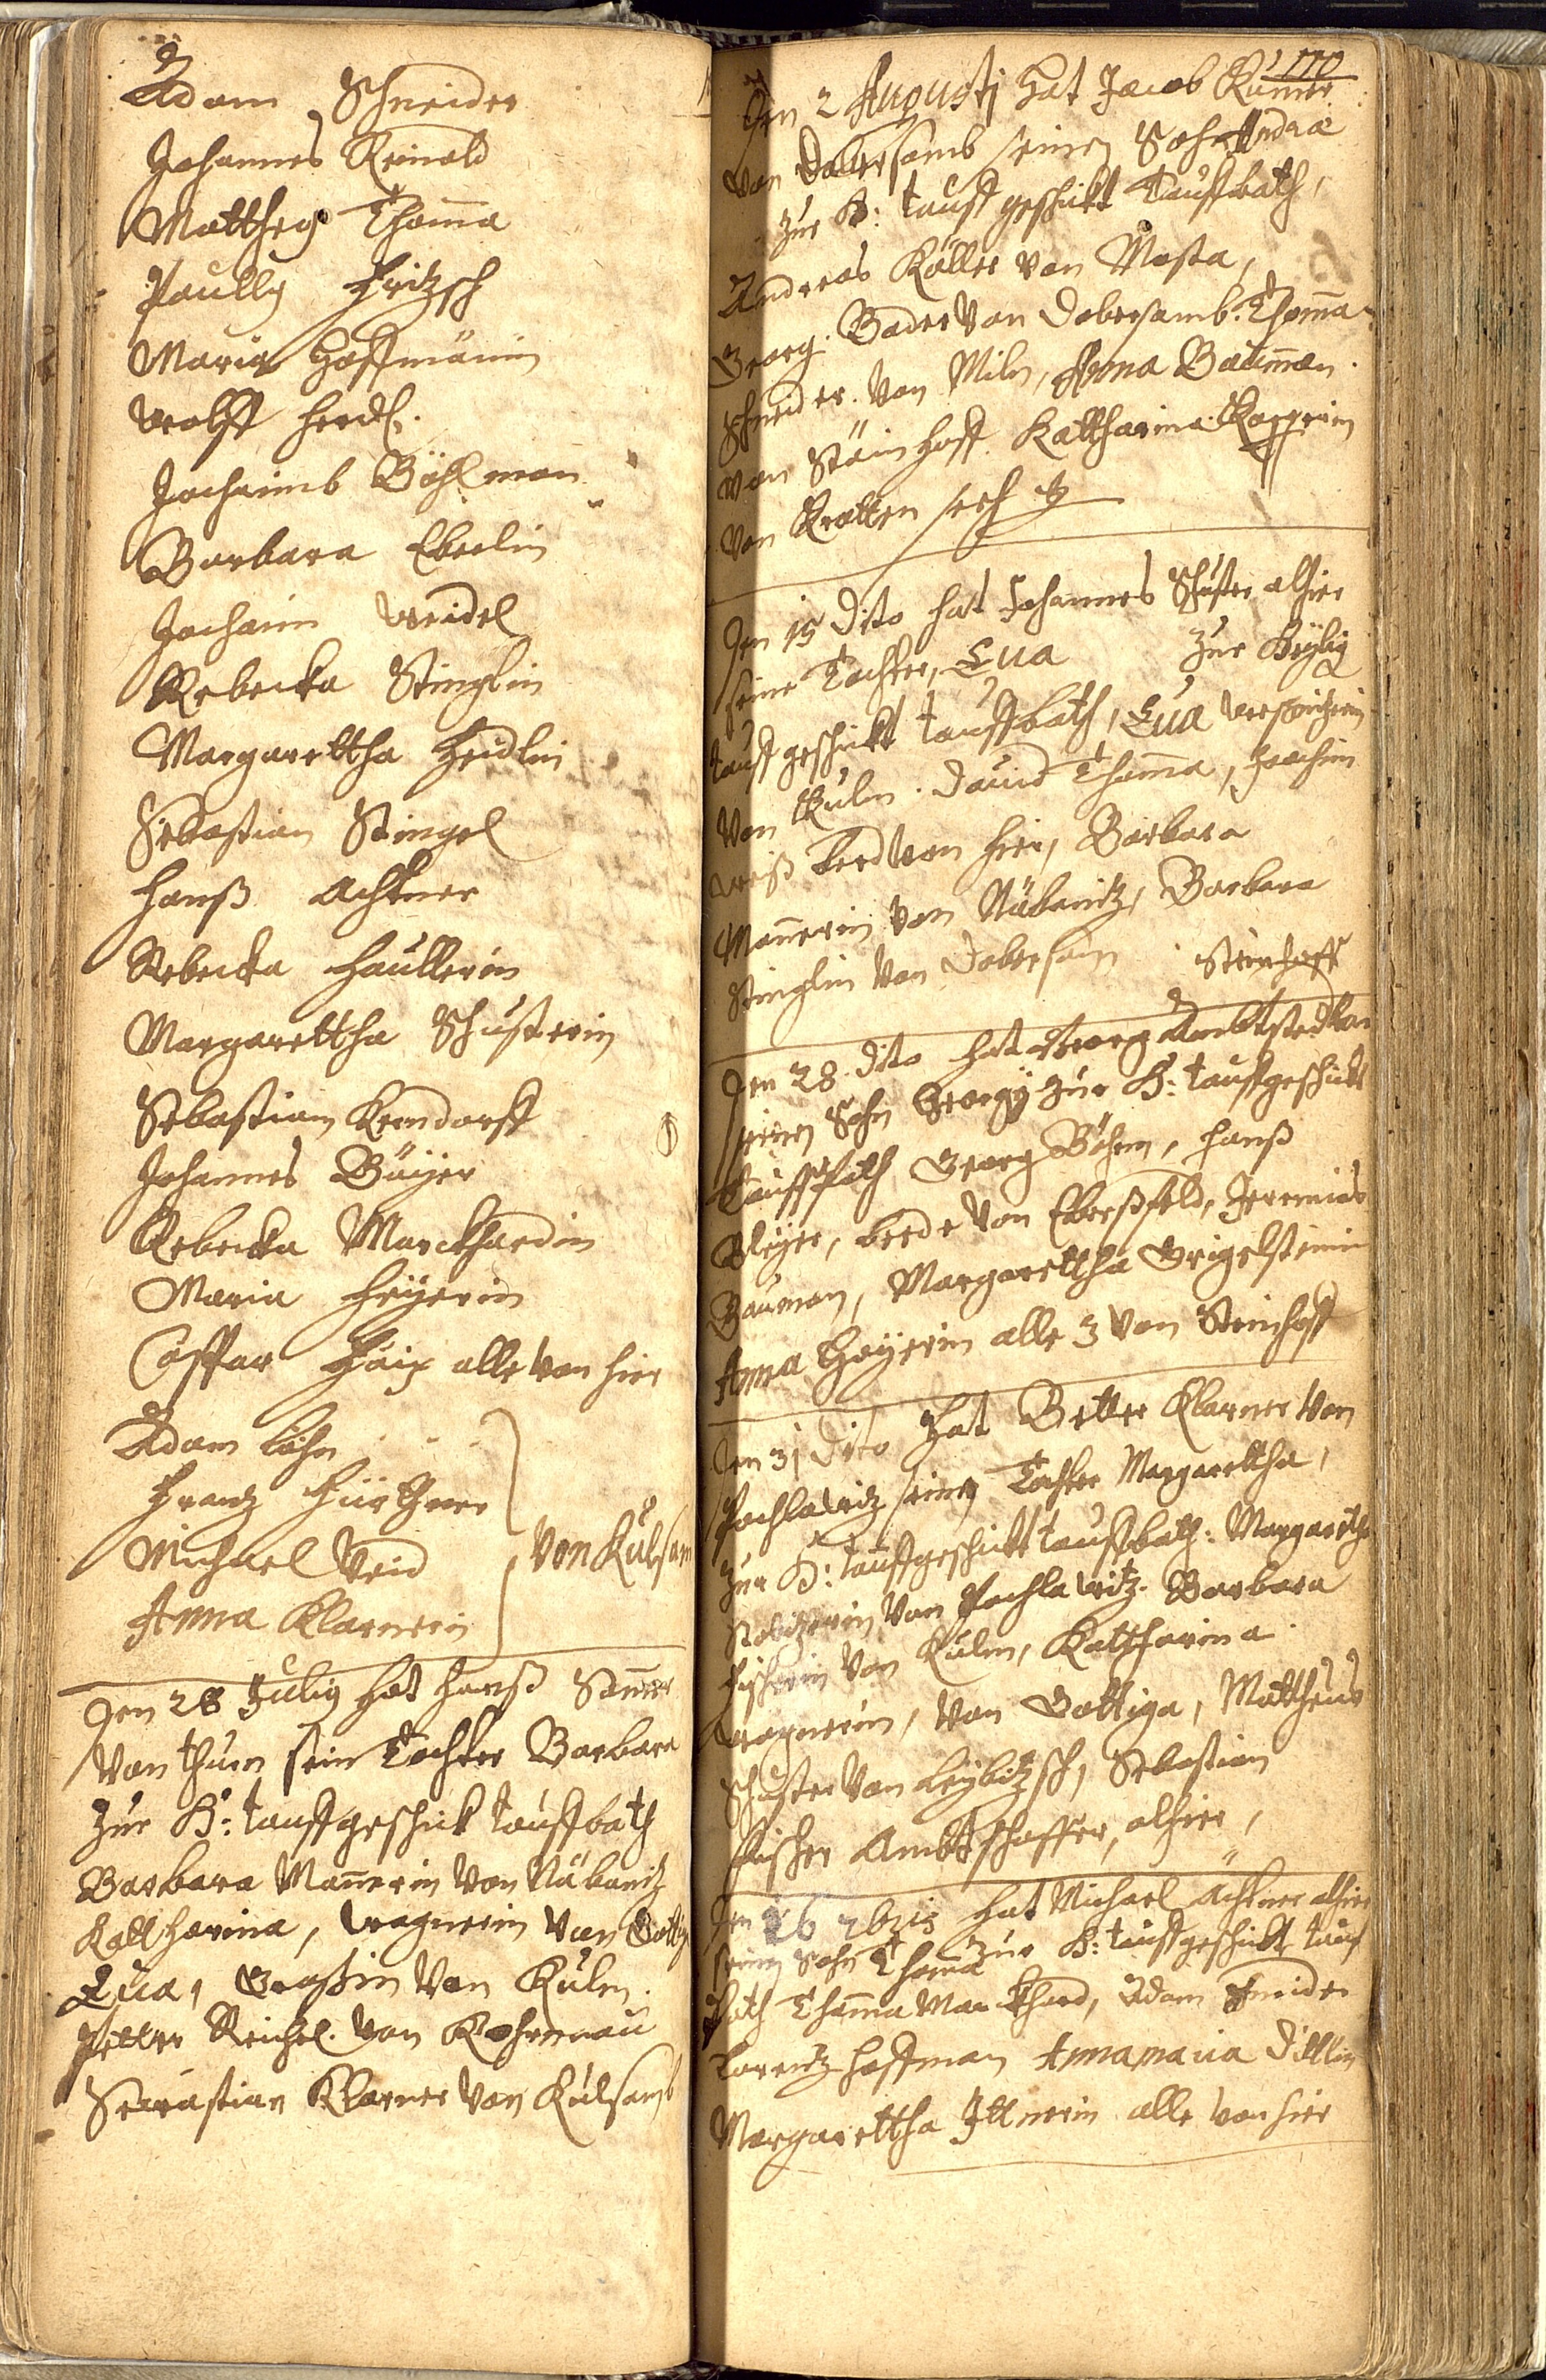 Adam Schneider
Johannes Reinold
Mattheg Thoma
Paully Fritzsch
Maria Hoffmänin
Wolff Herdl.
Jochaimb Böhlman
Barbara Eberlin
Jochaim Weidel
Rebecka Stinglin
Margarettha Heidlin
Sebastian Stingel
Hanß Achtner
Rebecka Haüllerin
Margarettha Schusterin
Sebastian Kerndorff
Johannes Bäÿer
Rebecka Marckhardin
Maria Heÿerin
Casspar alle von hier
Adam Löhn
Frantz Fürthner
Michael Veid von Külsam
Anna Klarnerin
Den 28 Julig hat Hanß
von thurn sein Tochter Barbara
Zur H: tauff geschick tauffbath
Barbara Mañerin von Näbanitz
Katthariną, Wagnerin von Gottig
Eua, von Kulm.
Petter Reichel. von
Sewastian Klarner von Külsamb
110
Den 2 Augustj Hat Jacob Kümer
von Dobersamb seinen Sohn Andrae
zur H: tauff geschickt Tauffbath,
Andreas Köller von Mosta,
Georg. Bader Von Dobersamb. Thoma
Schneider. von Miln, Anna Baüman.
von Stäinhoff. Kattharina
von Krotten seeh
Den 15 Dito hat Johannes Schuster alhier
seine Tochter, Eua zur Heÿlig
tauff geschickt tauffbath, Eua
von Kulm. Dauid Thoma, Joachim
weiß beed von hier, Barbara
Mañerin von Näbanitz, Barbara
Stinglin von Dobersam Steinhoff
Den 28. Dito hat Georg von
seinen Sohn Georgÿ zur H: tauff geschickt
Tauffpath Georg Böhm, Hanß
beede von Eberßfeld, Jeremias
Bauman, Margarettha
Anna Heÿerin alle 3 von Steinhoff
Den 31 Dito Hat Better Klarner von
Pochlowitz seinen Tochter Margarettha,
zur H: tauff geschickt tauffbath: Margaretha
von Pochlawitz. Barbara
Fischerin von Kulm, Kattharina
wagnerin, von Gottiga, Mattheus
Schuster von Leÿbitzsch, Sebastian
Fischer Ambtschaffer, alhier,
Den 26 7bris hat Michael Achtner alhier
seinen Sohn Thoma zur H: tauff geschickt tauf
path Thoma Marckhard, Adam Schneider
Lorentz Hoffman Annamaria Dillin
Margarettha Ittnerin alle von hier